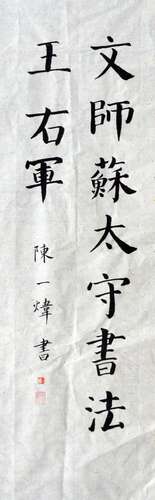 文師蘇太守書法
王右軍
陳一煒書